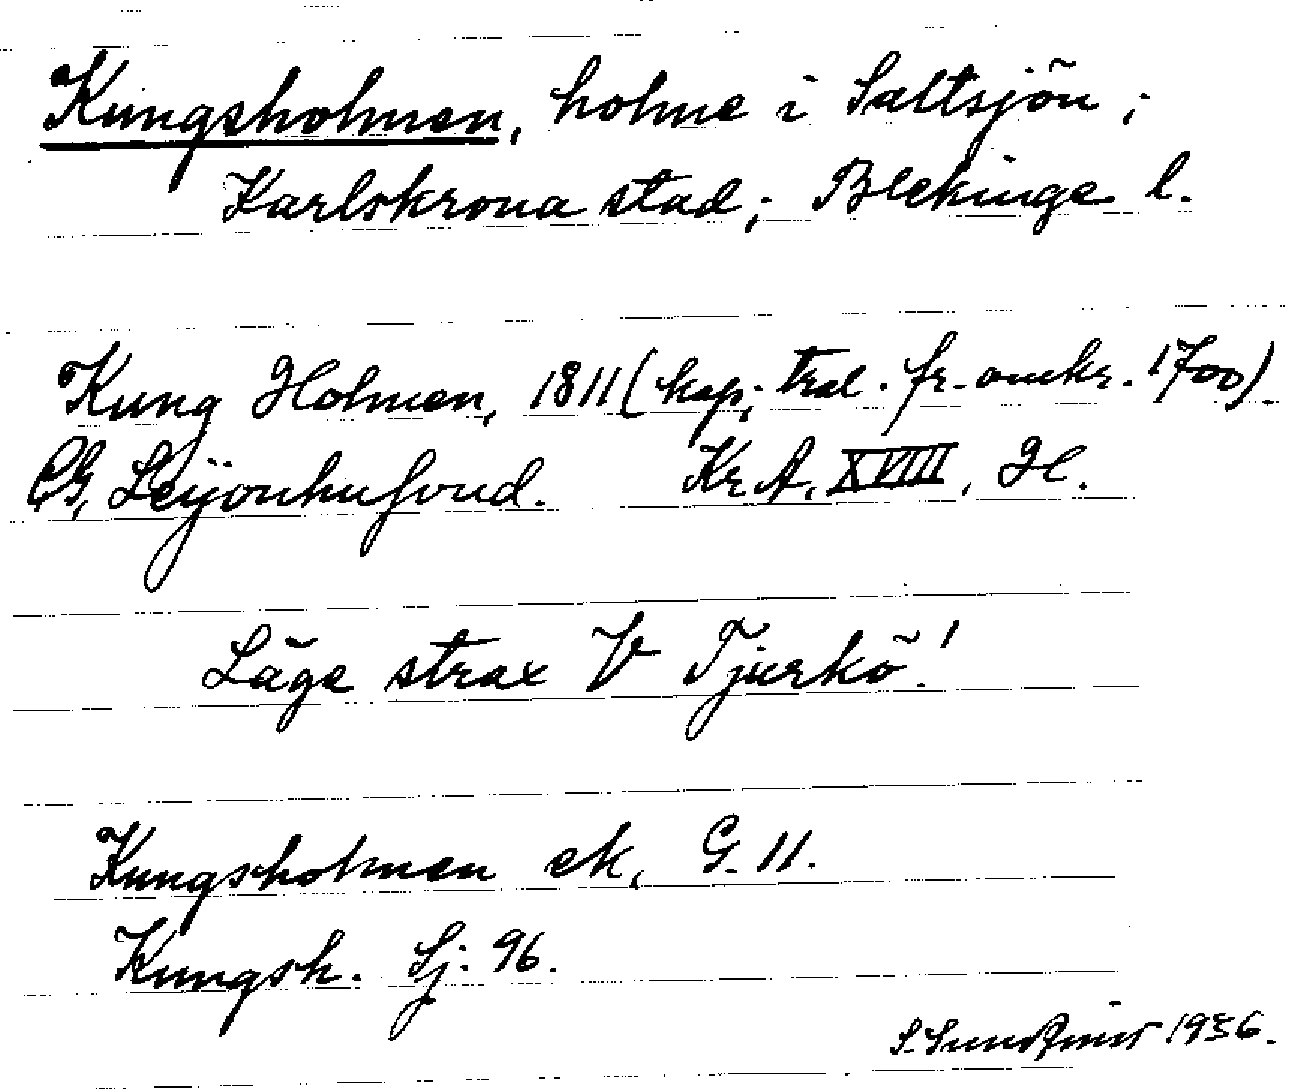 Kungsholmen, holme i Saltsjön;
Karlskrona stad; Blekinge l.
Kung Holmen, 1811 (kop. tral. fr. omkr. 1700)
CG, Leijonhufvud. Kr A, XVIII, H.
Läge strax V Tjurkö!
Kungsholmen ek, G. 11.
Kungsh. Sj. 96.
S. Sundqvist 1936.